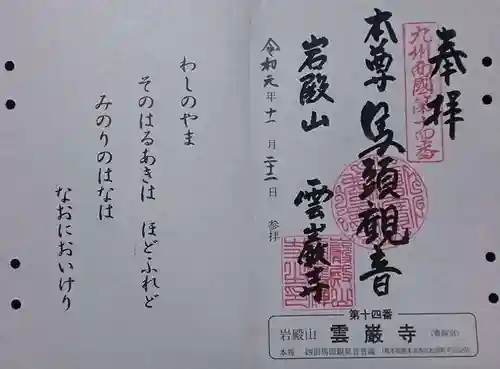 奉拝
九州西國第十四番
本尊 馬頭観音
岩殿山 雲巌寺
令和元年十一月二十二日 参拝
わしのやま
そのはるあきは ほどふれど
みのりのはなは
なおにおいけり
第十四番
岩殿山 雲巌寺
本尊 四面馬頭観世音菩薩